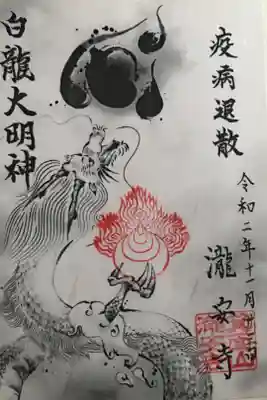 疫病退散
令和二年十一月
瀧安寺
白龍大明神